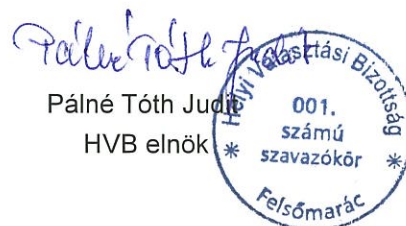 Pálné Tóth Judit
Pálné Tóth Judit
HVB elnök
Helyi Választási Bizottság
001.
számú
szavazókör
* Felsőmarác *